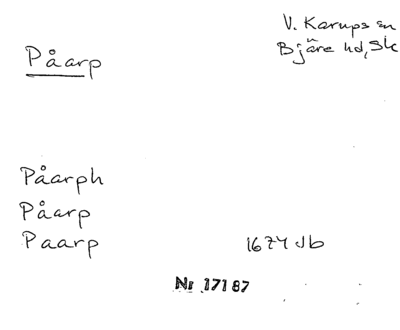 V. Karups sn
Påarp
Bjäre hd, Sk
Påarph
Påarp
Paarp 1674 Jb
Nr 17187